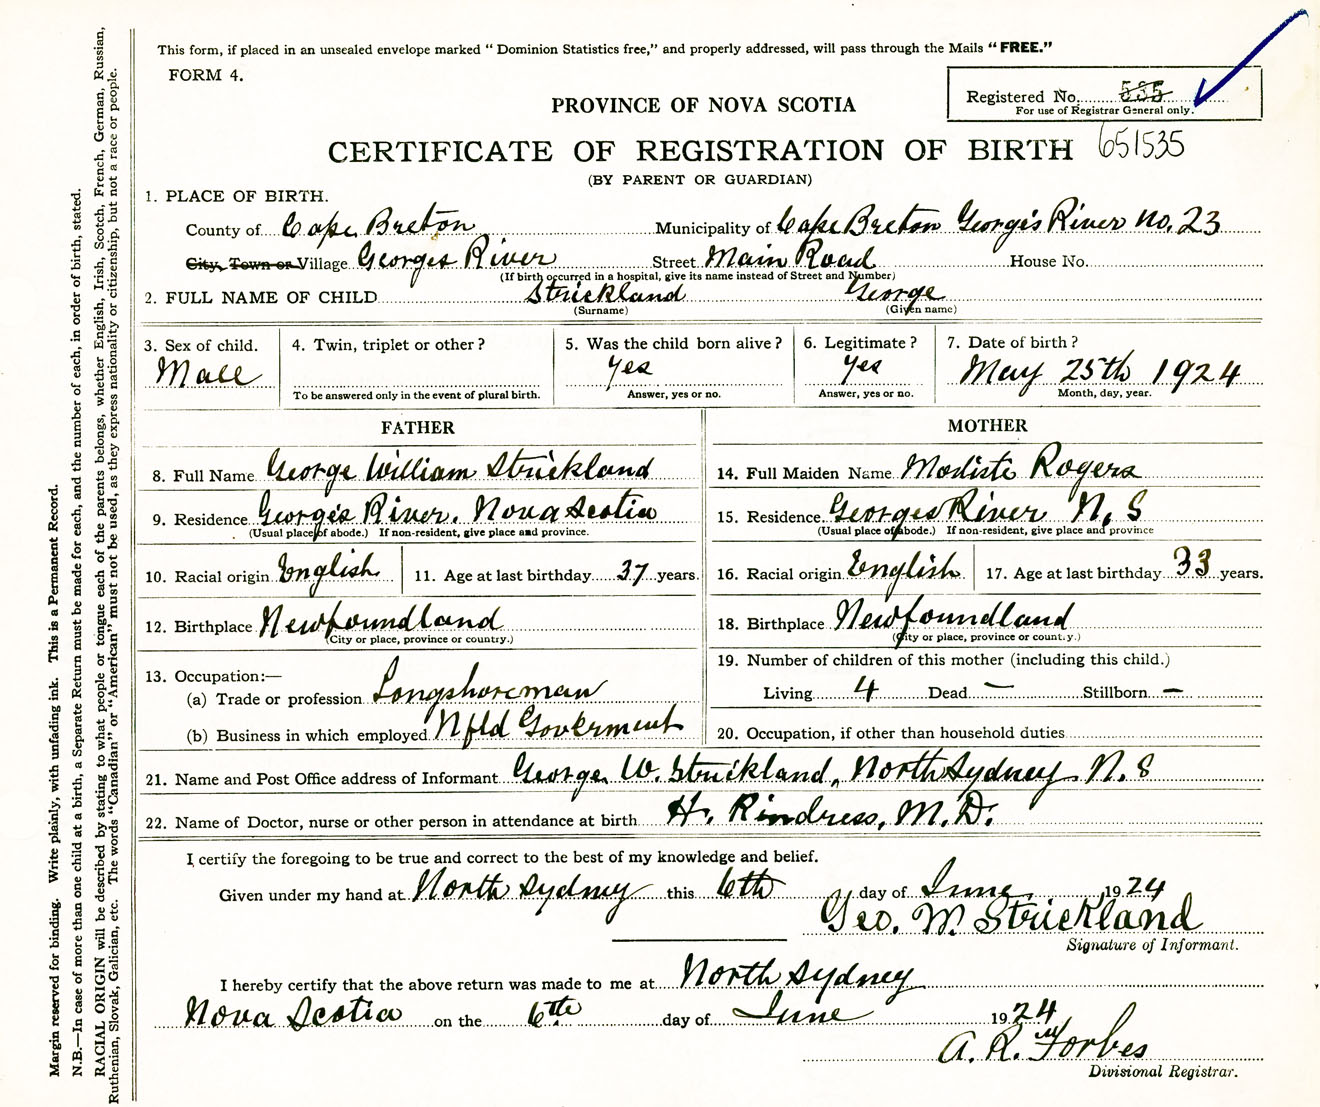 This form, if placed in an unsealed envelope marked " Dominion Statistics free," and properly addressed, will pass through the Mails "FREE."
FORM 4.
Registered No. 535
For use of Registrar General only.
PROVINCE OF NOVA SCOTIA
CERTIFICATE OF REGISTRATION OF BIRTH 651535
(BY PARENT OR GUARDIAN)
1. PLACE OF BIRTH.
County of Cape Breton Municipality of Cape Breton George's River No. 23
City, Town or Village Georges River Street Main Road House No.
(If birth occurred in a hospital, give its name instead of Street and Number)
2. FULL NAME OF CHILD Strickland George
(Surname) (Given name)
3. Sex of child. 4. Twin, triplet or other ? 5. Was the child born alive ? 6. Legitimate ? 7. Date of birth ?
Male Yes Yes May 25th 1924
To be answered only in the event of plural birth. Answer, yes or no. Answer, yes or no. Month, day, year.
FATHER MOTHER
8. Full Name George William Strickland 14. Full Maiden Name Modiste Rogers
9. Residence George's River. Nova Scotia 15. Residence Georges River N. S
(Usual place of abode.) If non-resident, give place and province. (Usual place of abode.) If non-resident, give place and province
10. Racial origin English 11. Age at last birthday 37 years. 16. Racial origin English 17. Age at last birthday 33 years.
12. Birthplace Newfoundland 18. Birthplace Newfoundland
(City or place, province or country.) (City or place, province or country.)
13. Occupation:— 19. Number of children of this mother (including this child.)
(a) Trade or profession Longshoreman Living 4 Dead — Stillborn —
(b) Business in which employed Nfld Goverment 20. Occupation, if other than household duties
21. Name and Post Office address of Informant George. W. Strickland, North Sydney N. S
22. Name of Doctor, nurse or other person in attendance at birth H. Rindress, M. D.
I certify the foregoing to be true and correct to the best of my knowledge and belief.
Given under my hand at North Sydney this 6th day of June 1924
Geo. W. Strickland
Signature of Informant.
I hereby certify that the above return was made to me at North Sydney
Nova Scotia on the 6th day of June 1924
A. R. Forbes
Divisional Registrar.
Margin reserved for binding. Write plainly, with unfading ink. This is a Permanent Record.
N.B.—In case of more than one child at a birth, a Separate Return must be made for each, and the number of each, in order of birth, stated.
RACIAL ORIGIN will be described by stating to what people or tongue each of the parents belongs, whether English, Irish, Scotch, French, German, Russian,
Ruthenian, Slovak, Galician, etc. The words "Canadian" or "American" must not be used, as they express nationality or citizenship, but not a race or people.